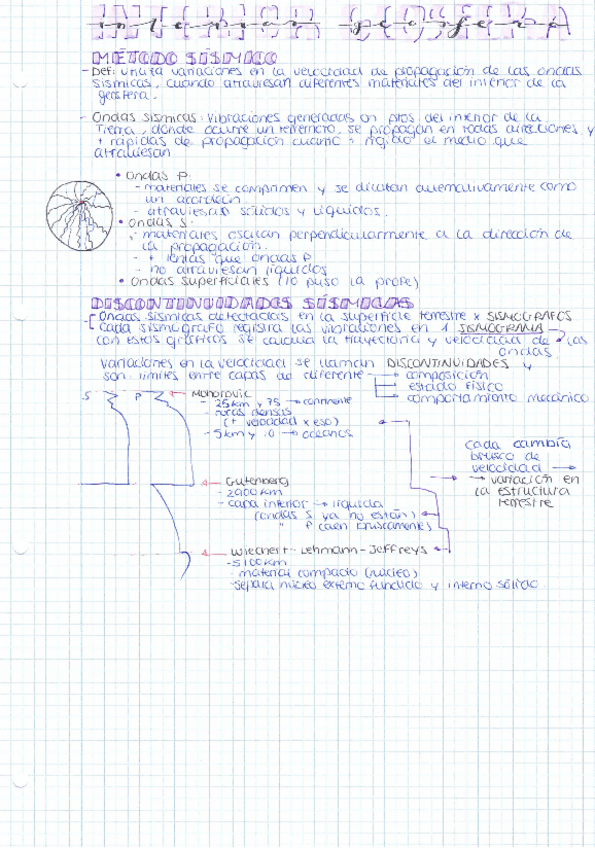 interior geosfera
MÉTODO SÍSMICO
- Def: utiliza variaciones en la velocidad de propagación de las ondas
sísmicas, cuando atraviesan diferentes materiales del interior de la
geosfera.
- Ondas sísmicas: vibraciones generadas en ptos. del interior de la
Tierra, dónde ocurre un terremoto. se propagan en todas direcciones y
+ rápidas de propagación cuanto + rígido el medio que
atraviesan
• Ondas P:
- materiales se comprimen y se dilatan alternativamente como
un acordeón.
- atraviesan sólidos y líquidos.
• Ondas S:
- materiales oscilan perpendicularmente a la dirección de
la propagación.
- + lentas que ondas P
- no atraviesan líquidos
• Ondas superficiales (lo puso la profe)
DISCONTINUIDADES SÍSMICAS
Ondas sísmicas detectadas en la superficie terrestre x SISMÓGRAFOS
Cada sismógrafo registra las vibraciones en 1 SISMOGRAMA
con estos gráficos se calcula la trayectoria y velocidad de las
ondas.
variaciones en la velocidad se llaman DISCONTINUIDADES y
son límites entre capas de diferente → composición
estado físico
comportamiento mecánico
S P
Mohorovic
- 25km y 75 → continente
- rocas densas
(+ velocidad x eso)
- 5km y 10 → océanos
cada cambio
brusco de
velocidad →
→ variación en
la estructura
terrestre
Gutenberg
- 2900km
- capa inferior → líquida
(ondas S ya no están)
" P (caen bruscamente)
Wiechert-Lehmann-Jeffreys
- 5100km
- material compacto (núcleo)
- separa núcleo externo fundido y interno sólido